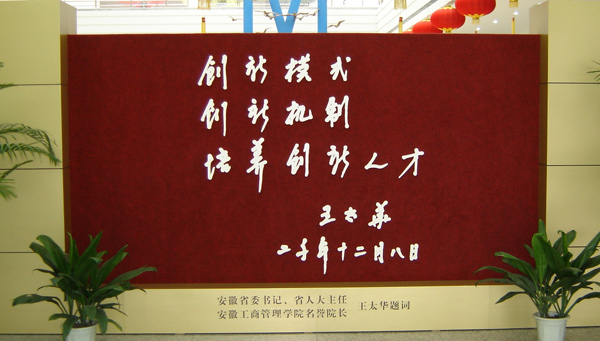 创新模式
创新机制
培养创新人才
王太华
二〇〇二年十二月八日
安徽省委书记、省人大主任
安徽工商管理学院名誉院长
王太华题词